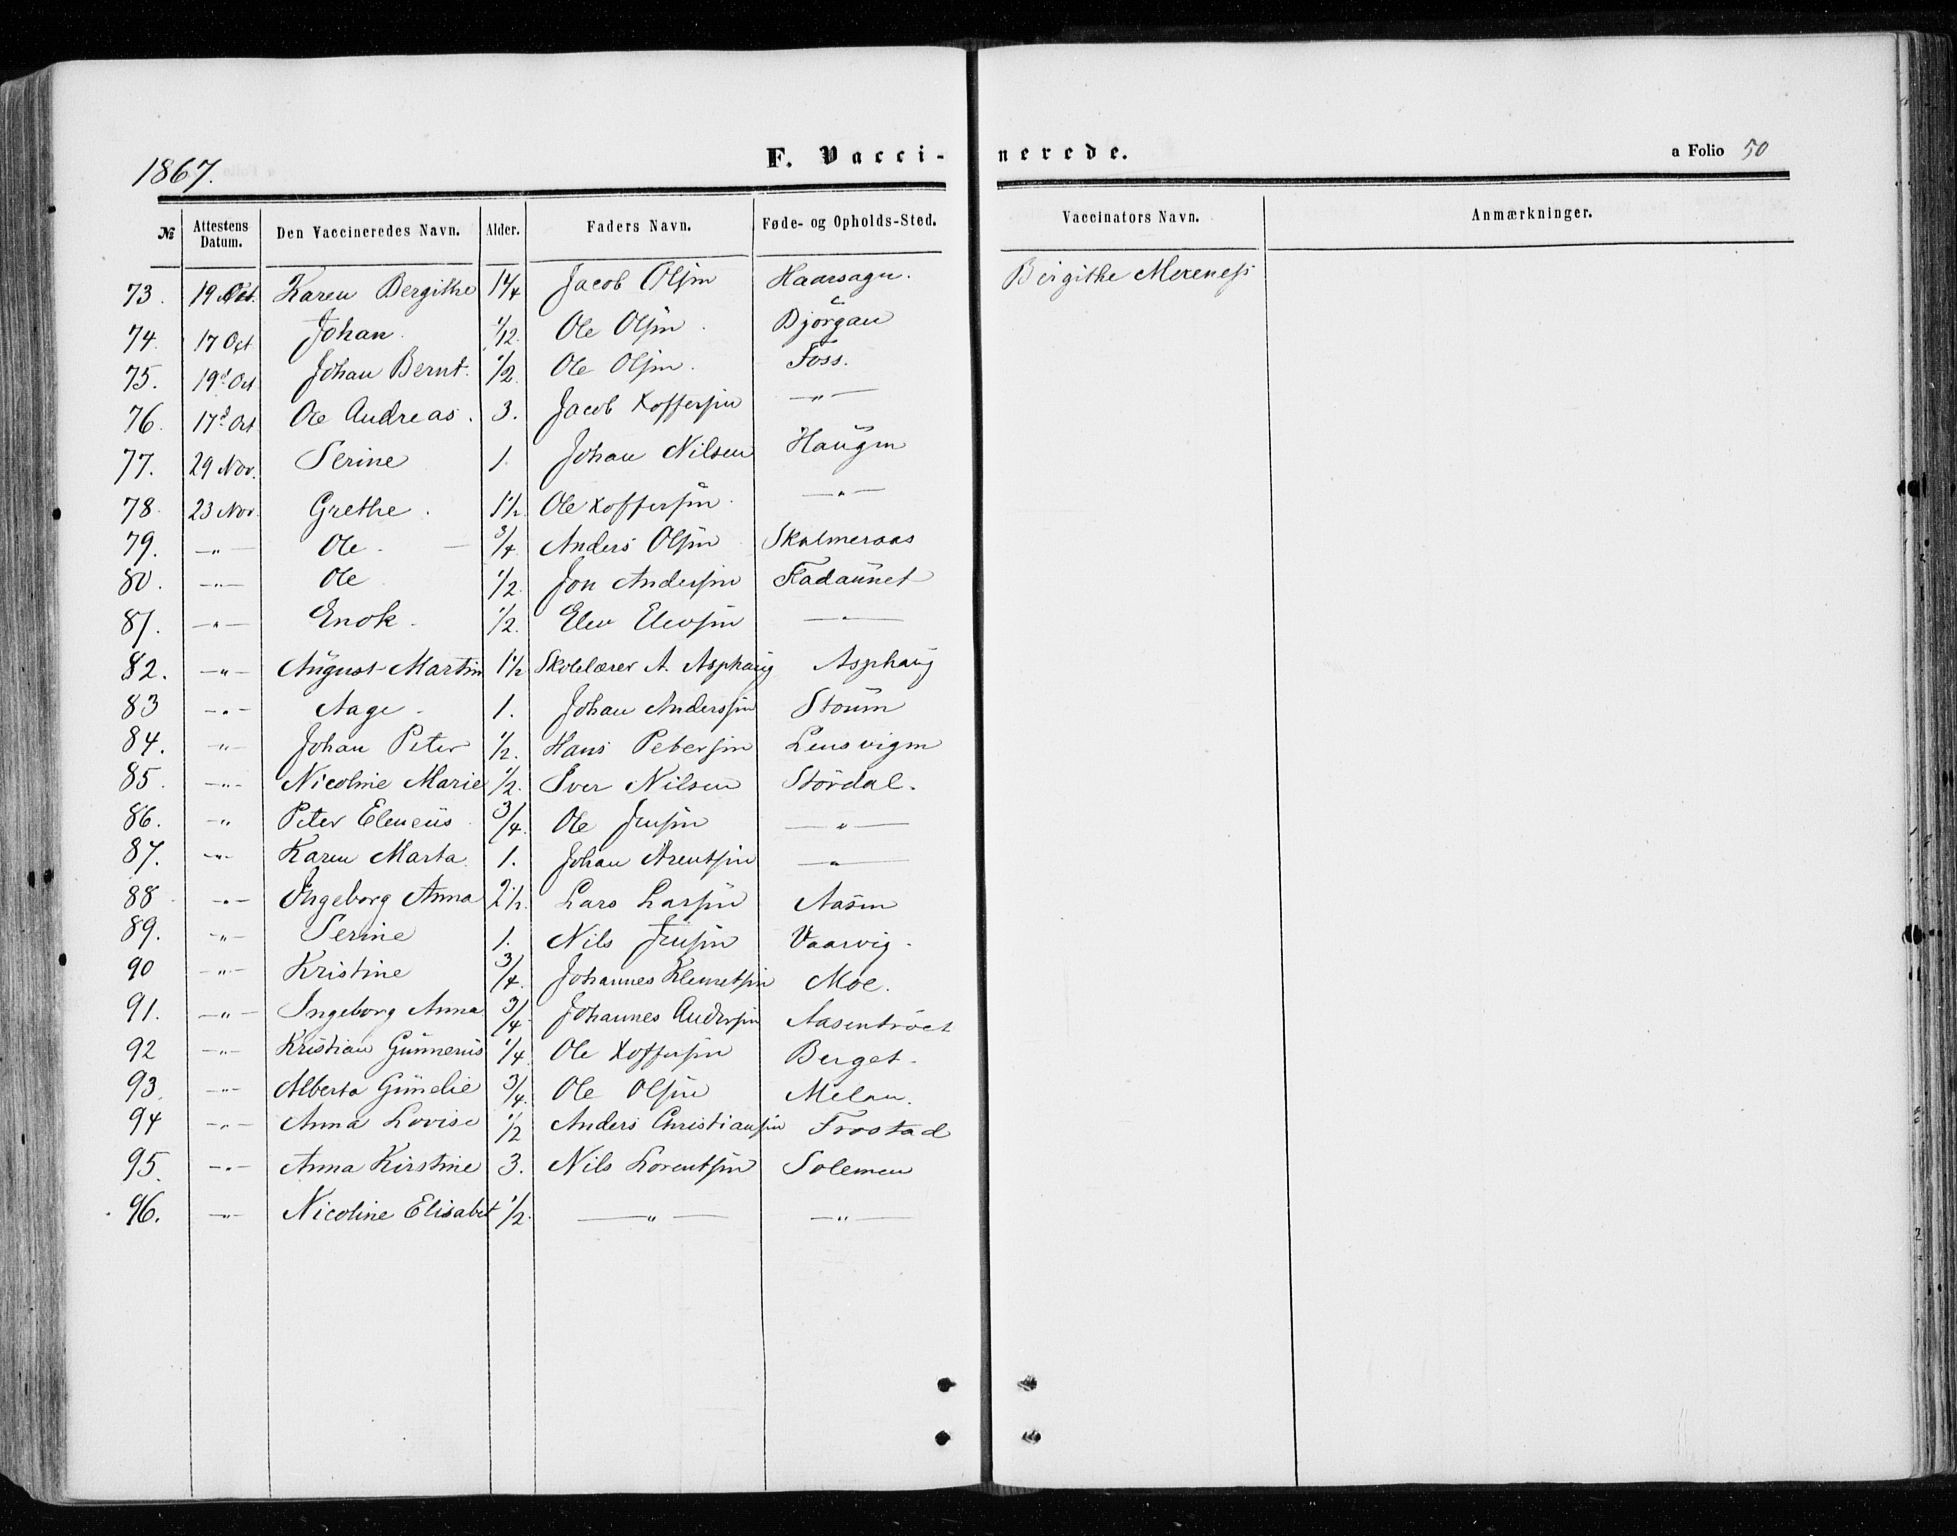 1867. F. Vacci- nerede. a Folio 50
№ Attestens Datum. Den Vaccineredes Navn. Alder. Faders Navn. Føde- og Opholds-Sted. Vaccinators Navn. Anmærkninger.
73. 19 Oct. Karen Bergithe 1 1/4 Jacob Olsen Haarsagn. Birgithe Mereness
74. 17 Oct. Johan. 1/12. Ole Olsen. Bjørgan
75. 19d Oct Johan Bernt. 1/2. Ole Olsen. Foss.
76. 17d Oct Ole Andreas. 3. Jacob Koffersen —"—
77. 29 Nov. Serine 1. Johan Nilsen Haugen
78. 23 Nov. Grethe. 1 1/2 Ole Koffersen. —"—
79. —"— Ole. — 3/4 Anders Olsen Skalmeraas
80. —"— Ole 1/2. Jon Andersen Fladaunet
81. —"— Enok. 1/2. Elev Elevsen —"—
82. —"— August Martin 1 1/2 Skolelærer A. Asphaug Asphaug
83 —"— Aage. 1. Johan Anderssen Stouin
84. —"— Johan Peter 1/2. Hans Petersen Lensvigen
85. —"— Nicoline Marie 1/2. Iver Nilsen Størdal.
86. —"— Peter Eleneüs 3/4. Ole Jensen —"—
87. —"— Karen Marta. 1. Johan Arentsen —"—
88 —"— Ingeborg Anna 2 1/2. Lars Larsen Aasen
89. —"— Serine 1. Nils Jensen Vaarvig.
90 —"— Kristine 3/4. Johannes Klemetsen Moe.
91. —"— Ingeborg Anna 3/4 Johannes Andersen Aasentrøet
92 —"— Kristian Gunnerius 1/4 Ole Koffersen Berget.
93. —"— Alberta Gunelie 3/4. Ole Olsen Melan.
94 —"— Anna Lovise 1/2 Anders Christiansen Frostad
95. —"— Anna Kirstine 3. Nils Lorentsen Solemen
96. —"— Nicoline Elisabet 1/2. —"— —"—